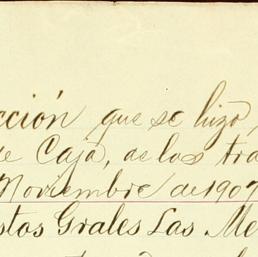 cción que se hizo,
e Caja, de los tra
Noviembre de 190
stos Grales Las Me